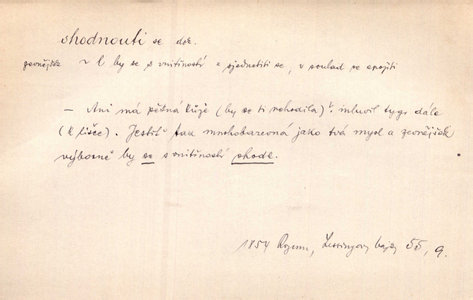 shodnouti se dok.
zevnějšek ~ l by se s vnitřností = sjednotiti se, v soulad se spojiti
— Ani má pěkná kůže (by se ti nehodila)", mluvil tygr dále
(k lišce). Jestiť tak mnohobarevná jako tvá mysl a zevnějšek
výborně by se s vnitřností shodl.
1854 Lessingovy bajky 55, 9.